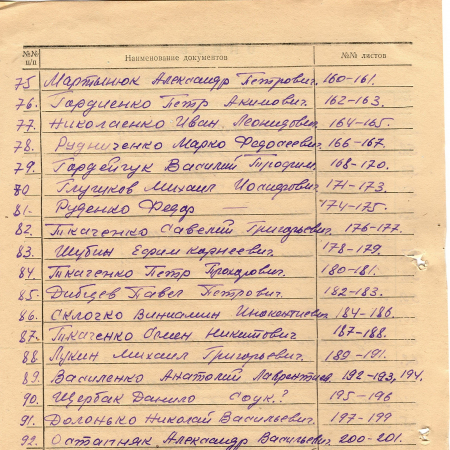 №№ п/п Наименование документов №№ листов
75 Мартынюк Александр Петрович. 160-161.
76. Гордиенко Петр Акимович. 162-163.
77. Николаенко Иван Леонидович. 164-165.
78. Рудниченко Марко Федосеевич. 166-167.
79. Гордейчук Василий Трофим. 168-170.
80 Глушков Михаил Иосифович 171-173.
81. Руденко Федор — 174-175.
82. Ткаченко Савелий Григорьевич. 176-177.
83. Шубин Ефим Карнеевич. 178-179.
84 Ткаченко Петр Прохорович. 180-181.
85. Дибцев Павел Петрович. 182-183.
86. Склочко Виниамин Инокентиевич 184-186.
87. Ткаченко Семен Никитович 187-188.
88 Лукин Михаил Григорьевич. 189-191.
89. Василенко Анатолий Лаврентиев. 192-193, 194.
90. Щербак Данило Соук.? 195-196
91. Долонько Николай Васильевич. 197-199
92. Остапняк Александр Васильевич. 200-201.